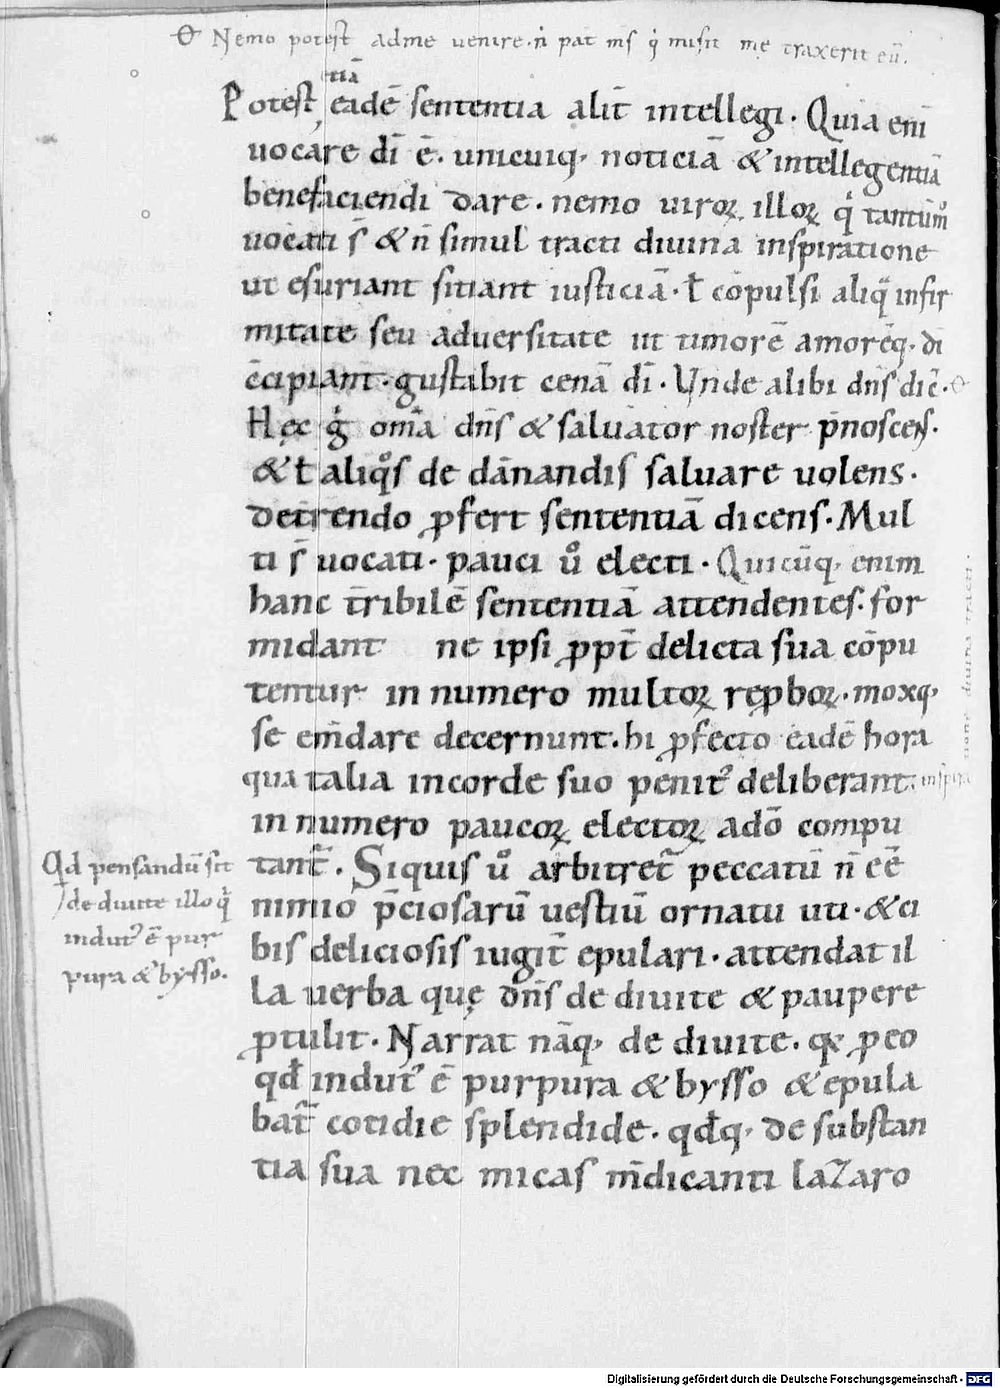 Nemo potest adme uenire. n̄ pat̄ ms̄ q̇ misit me traxerit eū.
tiā
Potest eadē sententia alit̄ intellegi. Quia eni
uocare dī ē. unicuiq; noticiā & intellegentiā
beneficiendi dare. nemo uiroꝝ illoꝝ q̇ tantūm̊
uocati s̄ & n̄ simul tracti diuina inspiratione
ut esuriant sitiant iusticiā. ł cōpulsi aliq̄ infir
mitate seu aduersitate ut timorē amorēq; dī
gustabit cenā dī. Unde alibi dn̄s dic̄.
Hęc g̊ om̄a dn̄s & saluator noster p̄noscens.
& ł aliq̊s de dānandis saluare uolens.
det̄rendo ꝓfert sententiā dicens. Mul
ti s̄ uocati. pauci ů electi. Quicūq; enim
hanc t̄ribilē sententiā attendentes. for
midant ne ipsi ꝓpt̄ delicta sua cōpu
tentur in numero multoꝝ reꝓboꝝ. moxq;
se em̄dare decernunt. hi ꝓfecto eadē hora
qua talia incorde suo penit᾽ deliberant.
in numero paucoꝝ electoꝝ adō compu
tant̄. Siquis ů arbitret̄ peccatū n̄ eē
nimio p̄ciosarū uestiū ornatu uti. & ci
bis deliciosis iugit̄ epulari. attendat il
la uerba quę dn̄s de diuite & paupere
ꝓtulit. Narrat nāq; de diuite. q; ꝓ eo
qd̄ indut᾽ ē purpura & bysso & epula
bat̄ cotidie splendide. qd̄q; de substan
tia sua nec micas m̄dicanti lazaro
Qd pensandū sit
de diuite illo q̇
indut᾽ ē pur
pura & bysso.
Digitalisierung gefördert durch die Deutsche Forschungsgemeinschaft - DFG